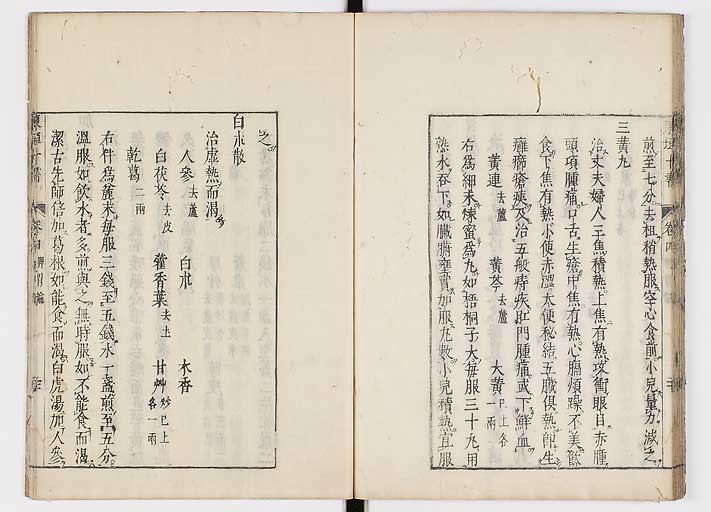 煎至七分去柤稍熱服空心食前小兒量力減之
三黃丸
治丈夫婦人三焦積熱上焦有熱攻衝眼目赤腫
頭項腫痛口舌生瘡中焦有熱心膈煩躁不美飲
食下焦有熱小便赤澀大便秘結五臟俱熱即生
癰癤瘡痍及治五般痔疾肛門腫痛或下鮮血
黃連去蘆 黃芩去蘆 大黃已上各一兩
右爲細末煉蜜爲丸如梧桐子大每服三十丸用
熱水吞下如臟腑壅實加服丸數小兒積熱宜服
之
白朮散
治虛熱而渴
人參去蘆 白朮 木香
白茯苓去皮 藿香葉去土 甘艸炒已上各一兩
乾葛二兩
右件爲麄末每服三錢至五錢水一盞煎至五分
溫服如飲水者多煎與之無時服如不能食而渴
潔古先師倍加葛根如能食而渴白虎湯加人參
東垣十書
卷四